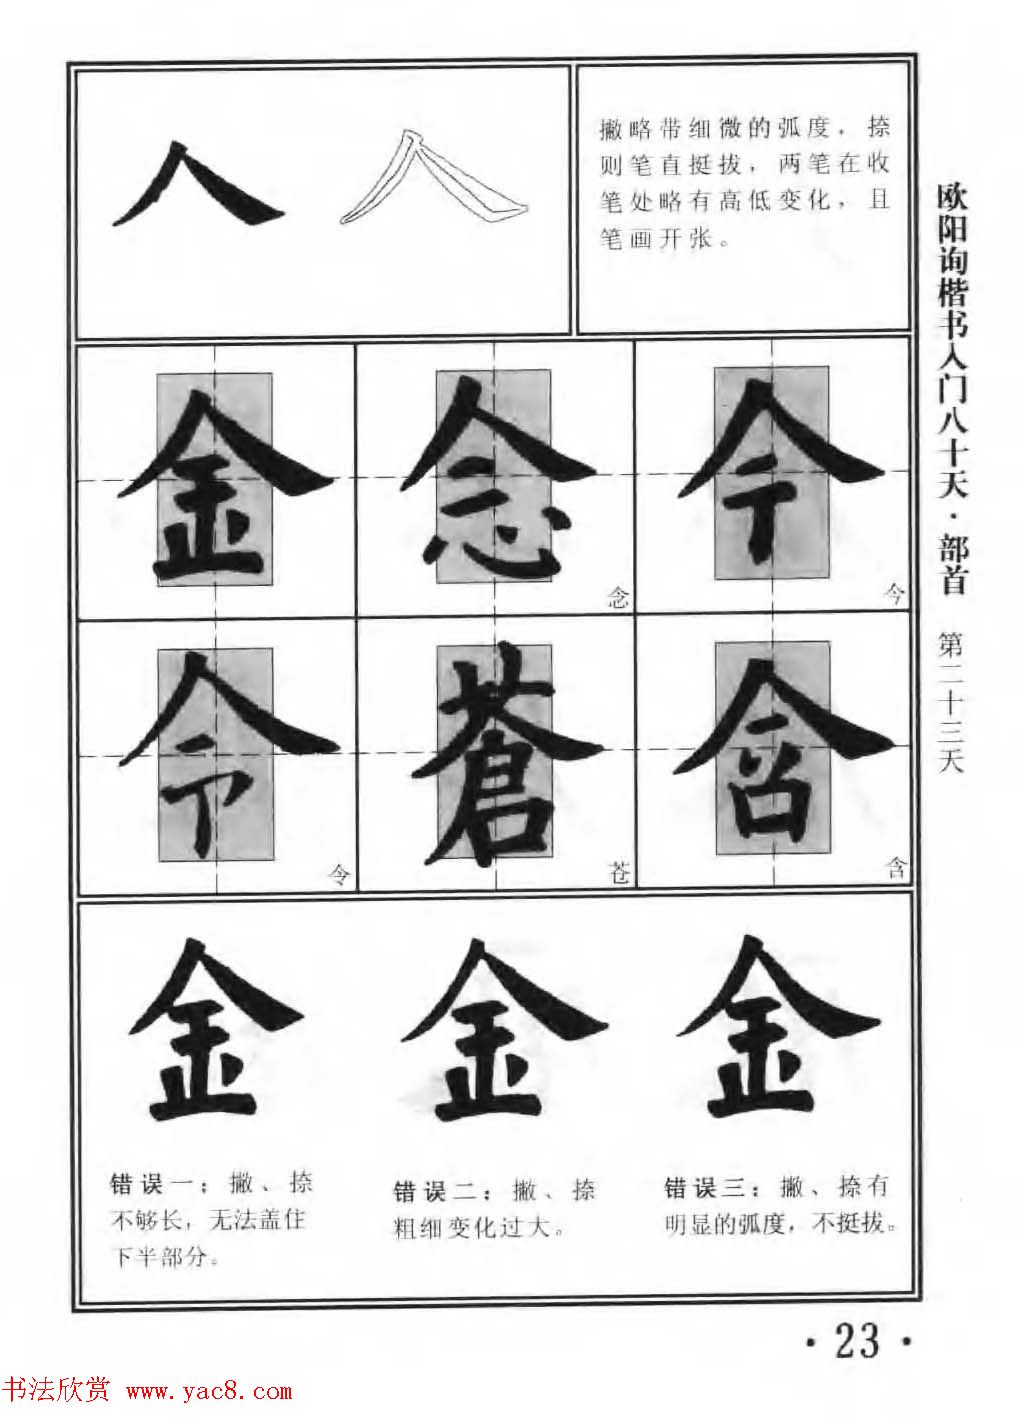 人 人
撇略带细微的弧度，捺
则笔直挺拔，两笔在收
笔处略有高低变化，且
笔画开张。
欧阳询楷书入门八十天·部首 第二十三天
金 念 今
念 今
令 蒼 含
令 苍 含
金 金 金
错误一：撇、捺
不够长，无法盖住
下半部分。
错误二：撇、捺
粗细变化过大。
错误三：撇、捺有
明显的弧度，不挺拔。
·23·
书法欣赏 www.yac8.com